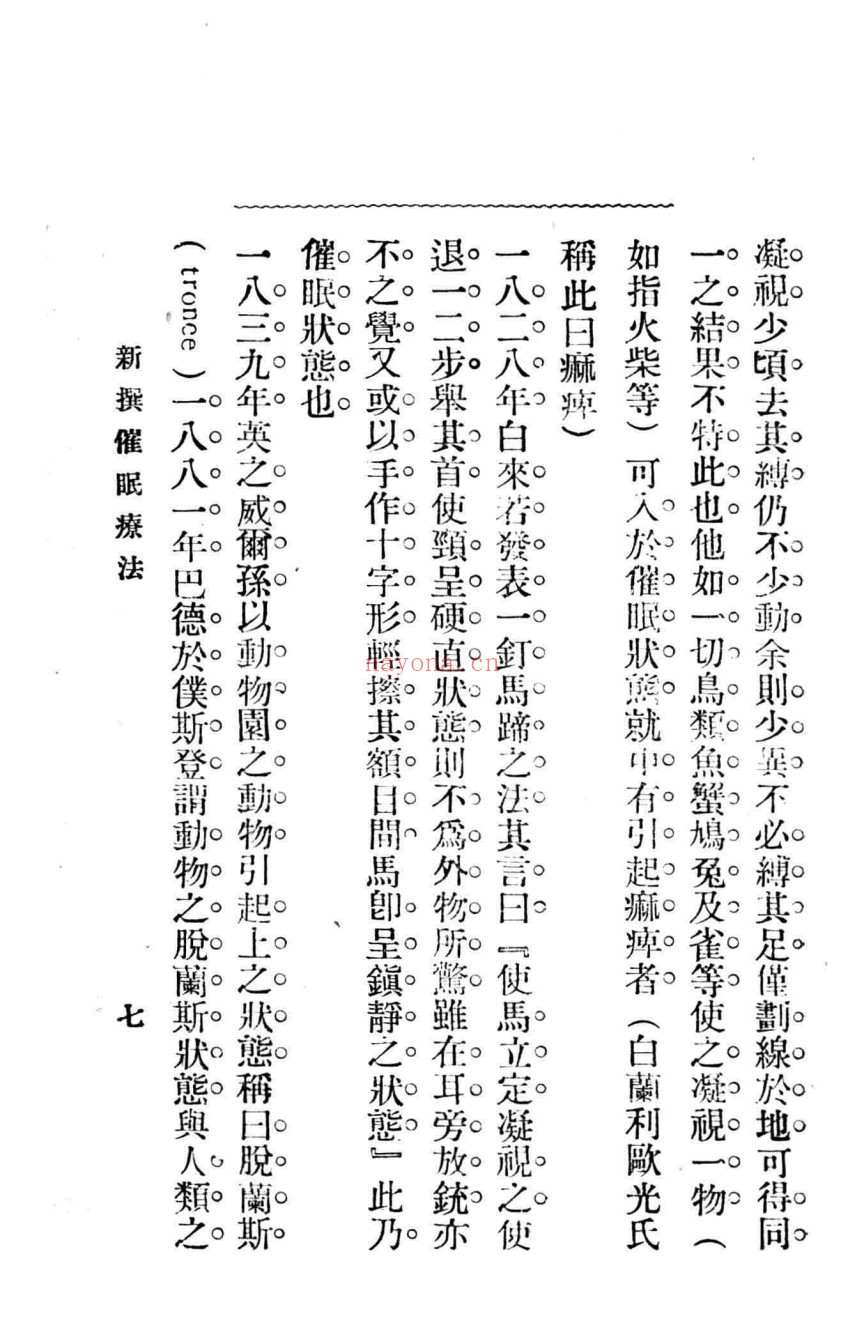 凝視少頃去其縛仍不少動余則少異不必縛其足僅劃線於地可得同
一之結果不特此也他如一切鳥類魚蟹鳩兔及雀等使之凝視一物（
如指火柴等）可入於催眠狀態就中有引起痲痺者（白蘭利歐光氏
稱此曰痲痺）
一八二八年白來若發表一釘馬蹄之法其言曰『使馬立定凝視之使
退一二步舉其首使頸呈硬直狀態則不爲外物所驚雖在耳旁放銃亦
不之覺又或以手作十字形輕擦其額目間馬卽呈鎭靜之狀態』此乃
催眠狀態也
一八三九年英之威爾孫以動物園之動物引起上之狀態稱曰脫蘭斯
（tronce）一八八一年巴德於僕斯登謂動物之脫蘭斯狀態與人類之
新撰催眠療法
七
nayona.cn